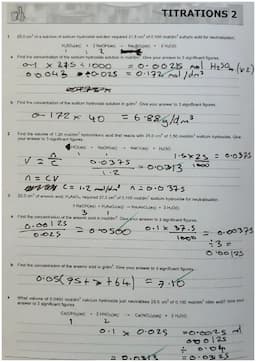 TITRATIONS 2
1 25.0 cm³ of a solution of sodium hydroxide solution required 21.5 cm³ of 0.100 mol/dm³ sulfuric acid for neutralisation.
H₂SO₄(aq) + 2 NaOH(aq) → Na₂SO₄(aq) + 2 H₂O(l)
1 2
a Find the concentration of the sodium hydroxide solution in mol/dm³. Give your answer to 3 significant figures.
= 0.00215 mol H₂SO₄ (x2)
0.0043 ÷ 0.025 = 0.172 mol/dm³
b Find the concentration of the sodium hydroxide solution in g/dm³. Give your answer to 3 significant figures.
0.172 x 40 = 6.88 g/dm³
2 Find the volume of 1.20 mol/dm³ hydrochloric acid that reacts with 25.0 cm³ of 1.50 mol/dm³ sodium hydroxide. Give your answer to 3 significant figures.
HCl(aq) + NaOH(aq) → NaCl(aq) + H₂O(l)
V = n/c 0.0375/1.2 = 0.0313 1.5x25/1000 = 0.0375
n = cv
c = 1.2 mol/dm³ n = 0.0375
3 25.0 cm³ of arsenic acid, H₃AsO₄, required 37.5 cm³ of 0.100 mol/dm³ sodium hydroxide for neutralisation.
3 NaOH(aq) + H₃AsO₄(aq) → Na₃AsO₄(aq) + 3 H₂O(l)
3 1
a Find the concentration of the arsenic acid in mol/dm³. Give your answer to 3 significant figures.
0.00125/0.025 = 0.0500 0.1 x 37.5/1000 = 0.00375
÷3 =
0.00125
b Find the concentration of the arsenic acid in g/dm³. Give your answer to 3 significant figures.
0.05(75+3+64) = 7.10
4 What volume of 0.0400 mol/dm³ calcium hydroxide just neutralises 25.0 cm³ of 0.100 mol/dm³ nitric acid? Give your answer to 3 significant figures.
Ca(OH)₂(aq) + 2 HNO₃(aq) → Ca(NO₃)₂(aq) + 2 H₂O(l)
1 2
0.1 x 0.025 = 0.0025 mol
0.00125
÷ 0.04
= 0.0313 = 0.03125